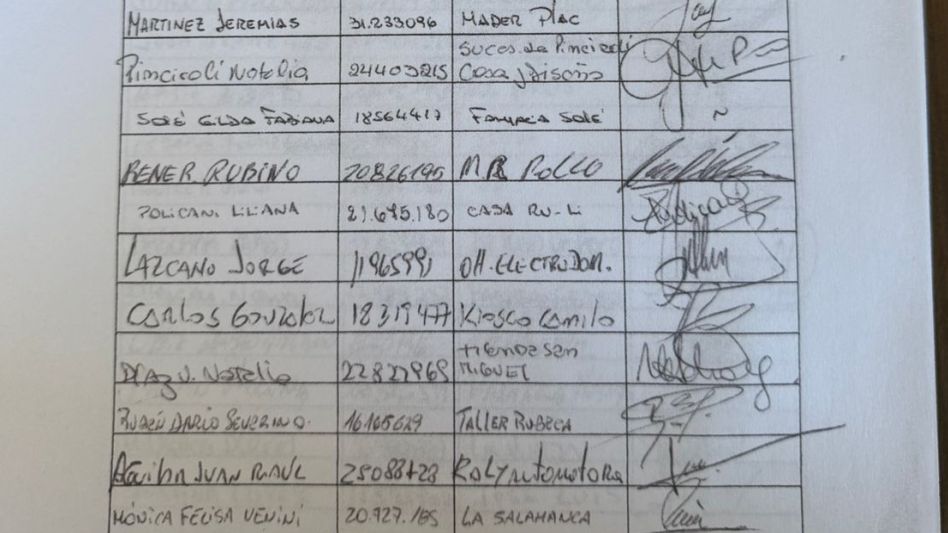 MARTINEZ JEREMIAS 31.233096 MADER PLAC
Pinciroli Natalia 24403215 Sucos. de Pinciroli
Casa y Diseño
SOLÉ GILDA FABIANA 18564417 FARMACIA SOLÉ
RENER RUBINO 20826195 M.R. ROLLO
POLICANI LILIANA 21.675.180 CASA RU-LI
LAZCANO JORGE 11965991 OH. ELECTRODOM.
CARLOS Gonzalez 18319477 Kiosco Camilo
DIAZ V. Natalia 22827969 tienda San
MIGUEL
RUBÉN DARIO SEVERINO. 16165629 TALLER RUBECA
JUAN RAUL Raly Automotores
MÓNICA FELISA VENINI 20.927.165 LA SALAMANCA